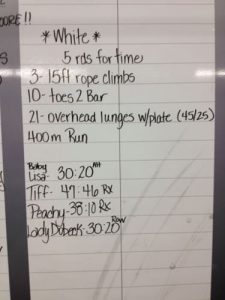 ORE!!
* White *
5 rds for time
3- 15ft rope climbs
10- toes 2 Bar
21- overhead lunges w/plate (45/25)
400m Run
Baby
Lisa- 30:20
Tiff: 47:46 Rx
Peachy- 38:10 Rx
Lady Dobeck- 30:20 Row